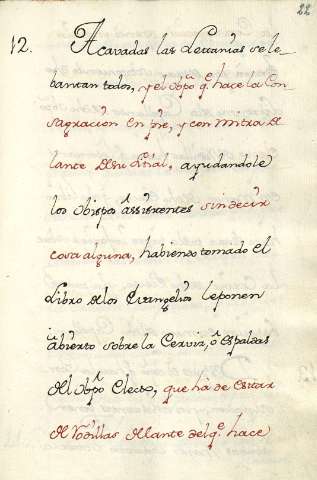 22
12. Acavadas las Lettanias se le-
bantan todos, y el obpo q.e hace la Con
sagracion en pie, y con mitra de
lante de su sitial, ayudandole
los obispos assistentes sin decir
cosa alguna, habiendo tomado el
Libro de los Evangelios le ponen
abierto sobre la Cerviz, ô espaldas
del obpo Electo, que ha de estar
de Rodillas delante del q.e hace